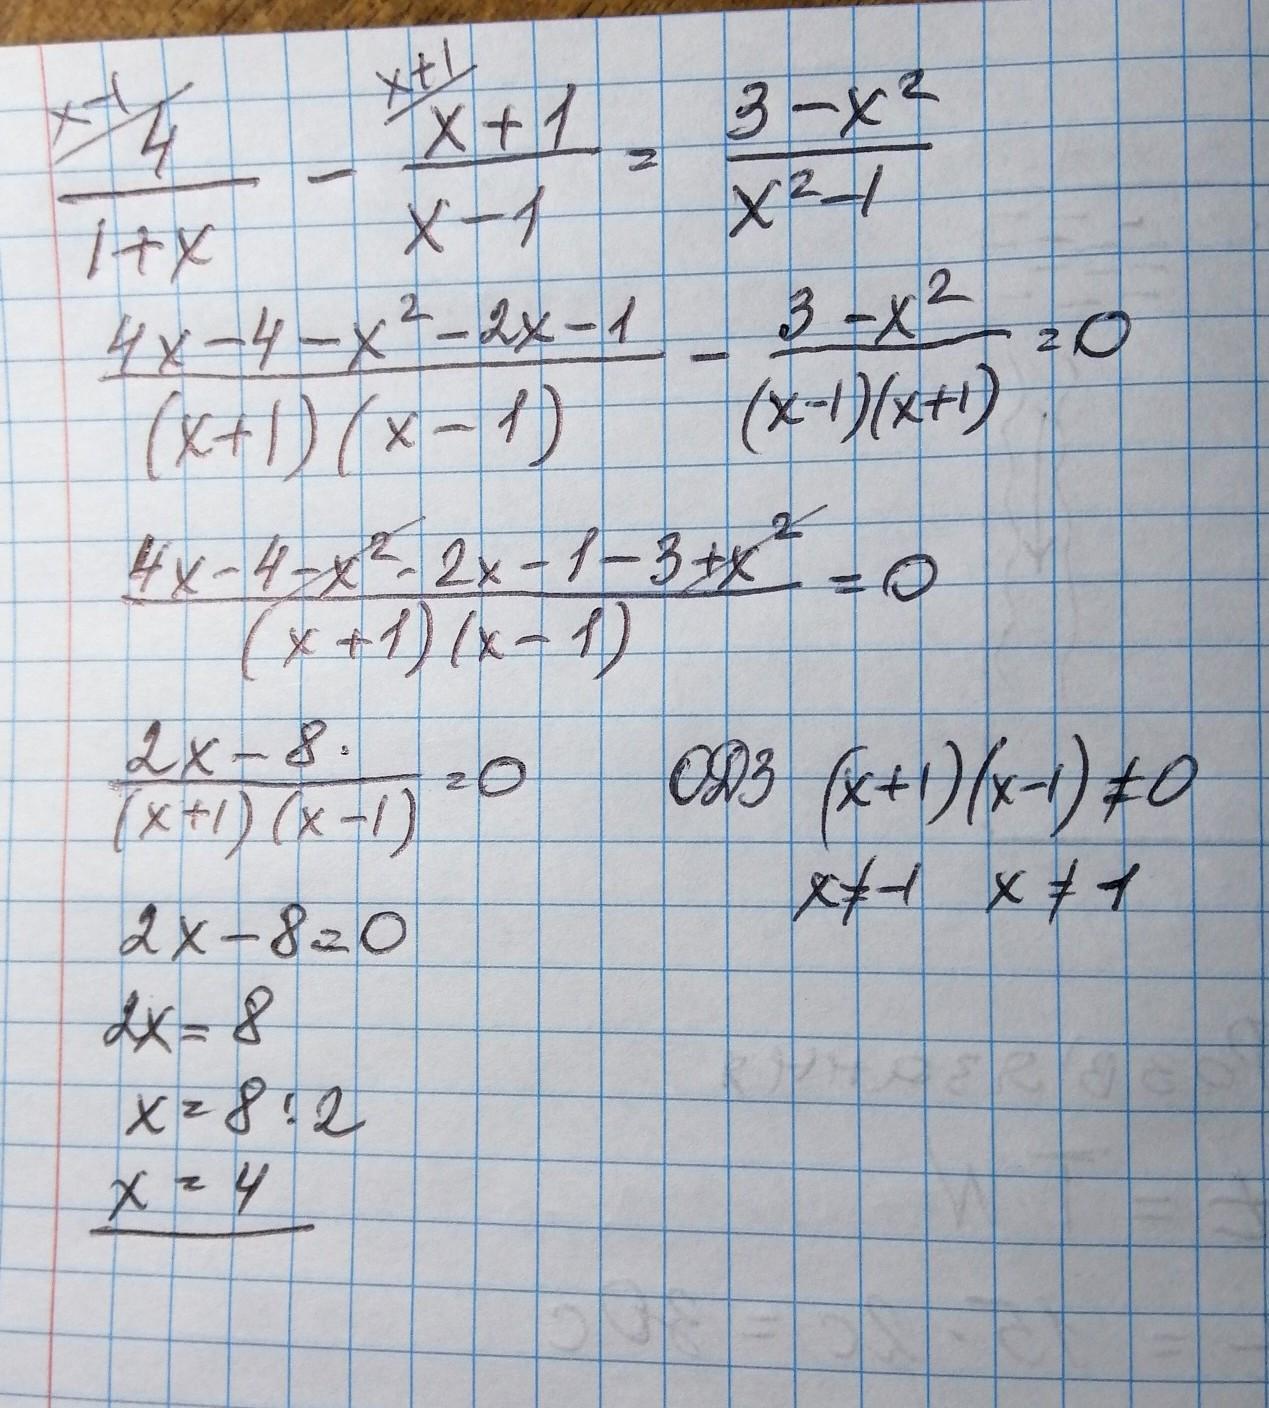 x-1 x+1
4/(1+x) - (x+1)/(x-1) = (3-x²)/(x²-1)
(4x-4-x²-2x-1)/((x+1)(x-1)) - (3-x²)/((x-1)(x+1)) = 0
(4x-4-x²-2x-1-3+x²)/((x+1)(x-1)) = 0
(2x-8)/((x+1)(x-1)) = 0 ОДЗ (x+1)(x-1)≠0
x≠-1 x≠1
2x-8=0
2x=8
x=8:2
x=4